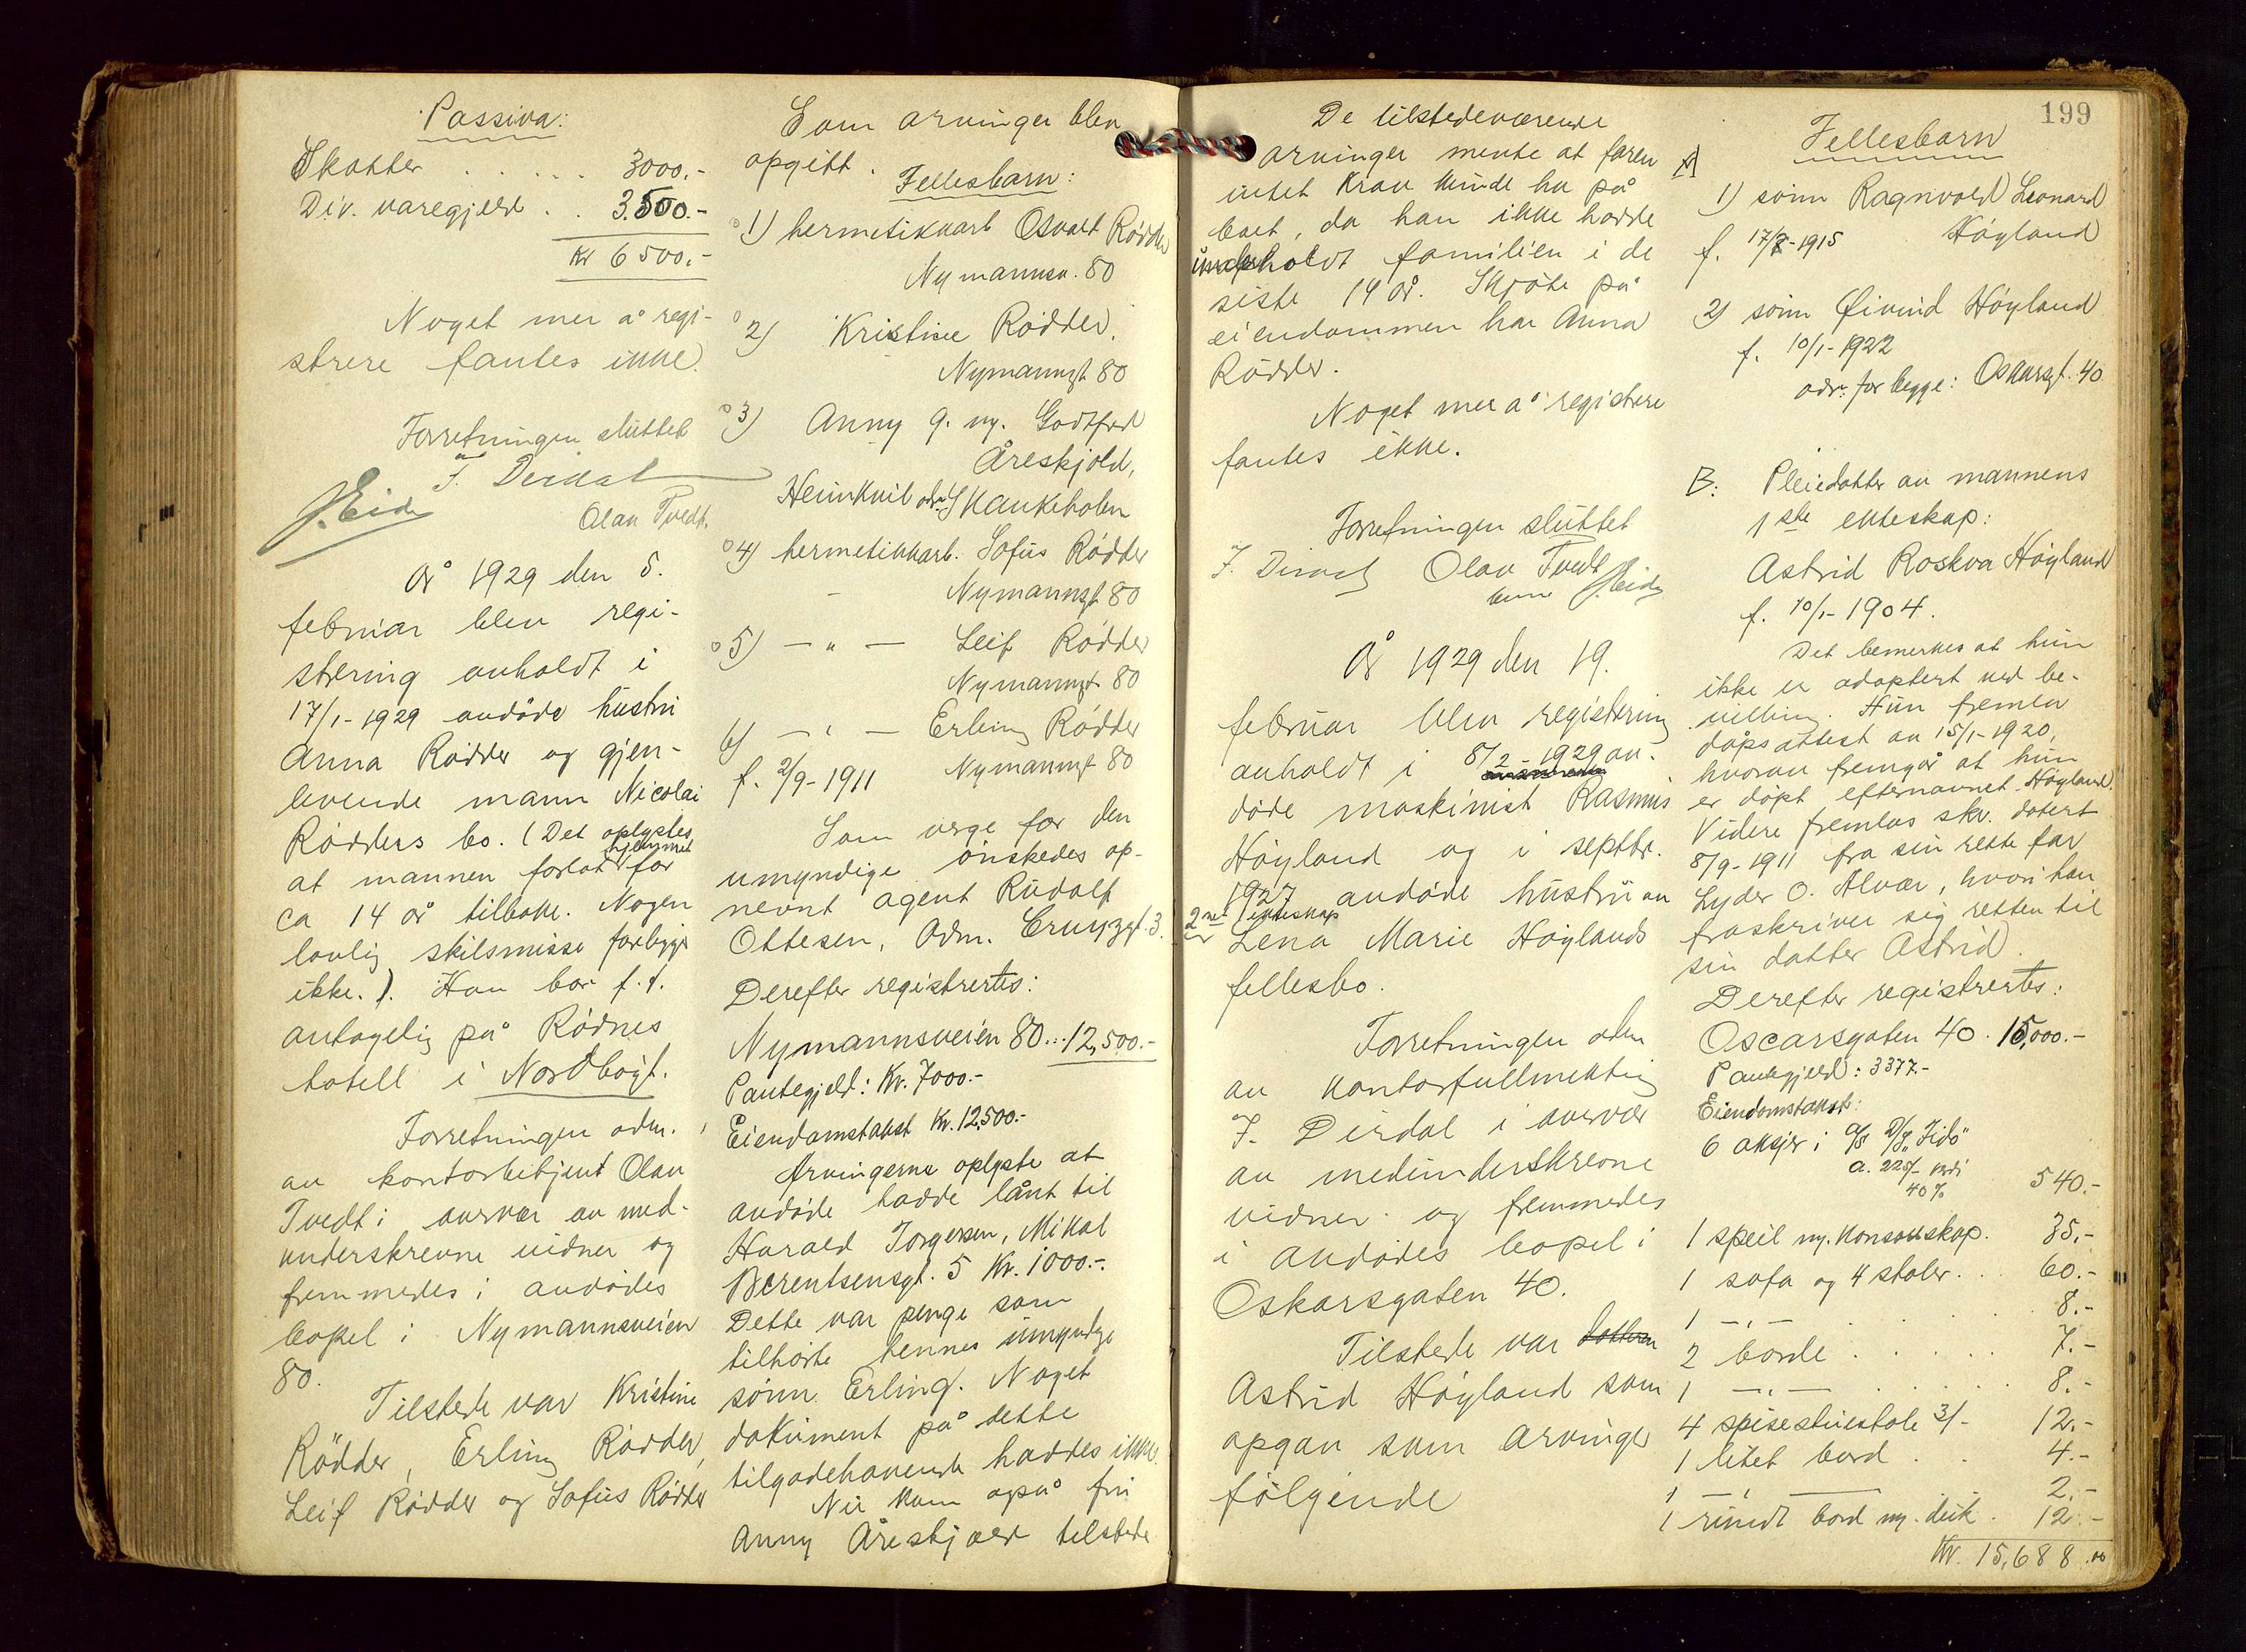 Passiva:
Skatter . . . . . 3000.-
Div. varegjeld . . 3.500.-
Kr 6500.-
Noget mer å regi-
strere fantes ikke.
Forretningen sluttet
J. Dirdal
J. Eide
Olav Tvedt.
År 1929 den 5.
februar blev regi-
strering avholdt i
17/1-1929 avdöde hustru
Anna Rödder og gjen-
levende mann Nicolai
Rödders bo. (Det oplystes
at mannen forlot hjemmet for
ca 14 år tilbake. Nogen
lovlig skilsmisse foreligger
ikke.). Han bor f.t.
antagelig på Rödnes
hotell i Nordbögt.
Forretningen adm.
av kontorbetjent Olav
Tvedt i overvær av med-
underskrevne vidner og
fremmedes i avdödes
bopel i Nymannsveien
80.
Tilstede var Kristine
Rödder, Erling Rödder,
Leif Rödder og Sofus Rödder
Som arvinger blev
opgitt.
Fellesbarn:
1) hermetikkarb Osvald Rödder
Nymannsv. 80
2) Kristine Rödder.
Nymannsgt 80
3) Anny g. m. Godtfred
Åreskjold,
Heimkvil adr. Skankeholen
4) hermetikkarb. Sofus Rödder
Nymannsgt 80
5) — " — Leif Rödder
Nymannsgt 80
6) — " — Erling Rödder
f. 2/9-1911 Nymannsgt 80
Som verge for den
umyndige önskedes op-
nevnt agent Rudolf
Ottesen, Adm. Cruyzgt. 3.
Derefter registrertes:
Nymannsveien 80...12,500.-
Pantegjeld: Kr. 7000.-
Eiendomstakst Kr. 12,500.-
Arvingerne oplyste at
avdöde hadde lånt til
Harald Torgersen, Mikal
Berentsensgt. 5 Kr. 1000.-.
Dette var penge som
tilhörte hennes umyndige
sönn Erling. Noget
dokument på dette
tilgodehavende haddes ikke.
Nu kom også fru
Anny Åreskjold tilstede
De tilstedeværende
arvinger mente at faren
intet krav kunde ha på
boet, da han ikke hadde
underholdt familien i de
siste 14 år. Skjöte på
eiendommen har Anna
Rödder.
Noget mer å registrere
fantes ikke.
Forretningen sluttet
J. Dirdal Olav Tvedt
J. Eide
År 1929 den 19.
februar blev registrering
avholdt i 8/2-1929 av-
döde maskinist Rasmus
Höyland og i septbr.
1927 avdöde hustru av
2net ekteskap
Lena Marie Höylands
fellesbo.
Forretningen adm
av kontorfullmektig
J. Dirdal i overvær
av medunderskrevne
vidner og fremmedes
i avdödes bopel i
Oskarsgaten 40.
Tilstede var datteren
Astrid Höyland som
opgav som arvinger
fölgende
199
A) Fellesbarn
1) sönn Ragnvald Leonard
Höyland
f. 17/8-1915
2) sönn Öivind Höyland
f. 10/1-1922
adr. for begge: Oskarsgt. 40
B: Pleiedatter av mannens
1ste ekteskap:
Astrid Roskva Höyland
f. 10/1-1904.
Det bemerkes at hun
ikke er adoptert ved be-
villing. Hun fremla
dåpsattest av 15/1-1920,
hvorav fremgår at hun
er döpt efternavnet Höyland.
Videre fremlas skr. datert
8/9-1911 fra sin rette far
Lyder O. Alvær, hvori han
fraskriver sig retten til
sin datter Astrid.
Derefter registrertes:
Oscarsgaten 40 . 15,000.-
Pantegjeld: 3377.-
Eiendomstakst:
6 aksjer i A/S D/S "Fido"
a. 225/- verdi
40% 540.-
1 speil m. konsolskap. 35.-
1 sofa og 4 stoler . . 60.-
1 — " — . . . . . 8.-
2 borde . . . . . 7.-
1 — " — . . . . . 8.-
4 spisestuestole 3/- 12.-
1 litet bord . . 4.-
1 — " — 2.-
1 rundt bord m. duk . 12.-
Kr. 15,688.00